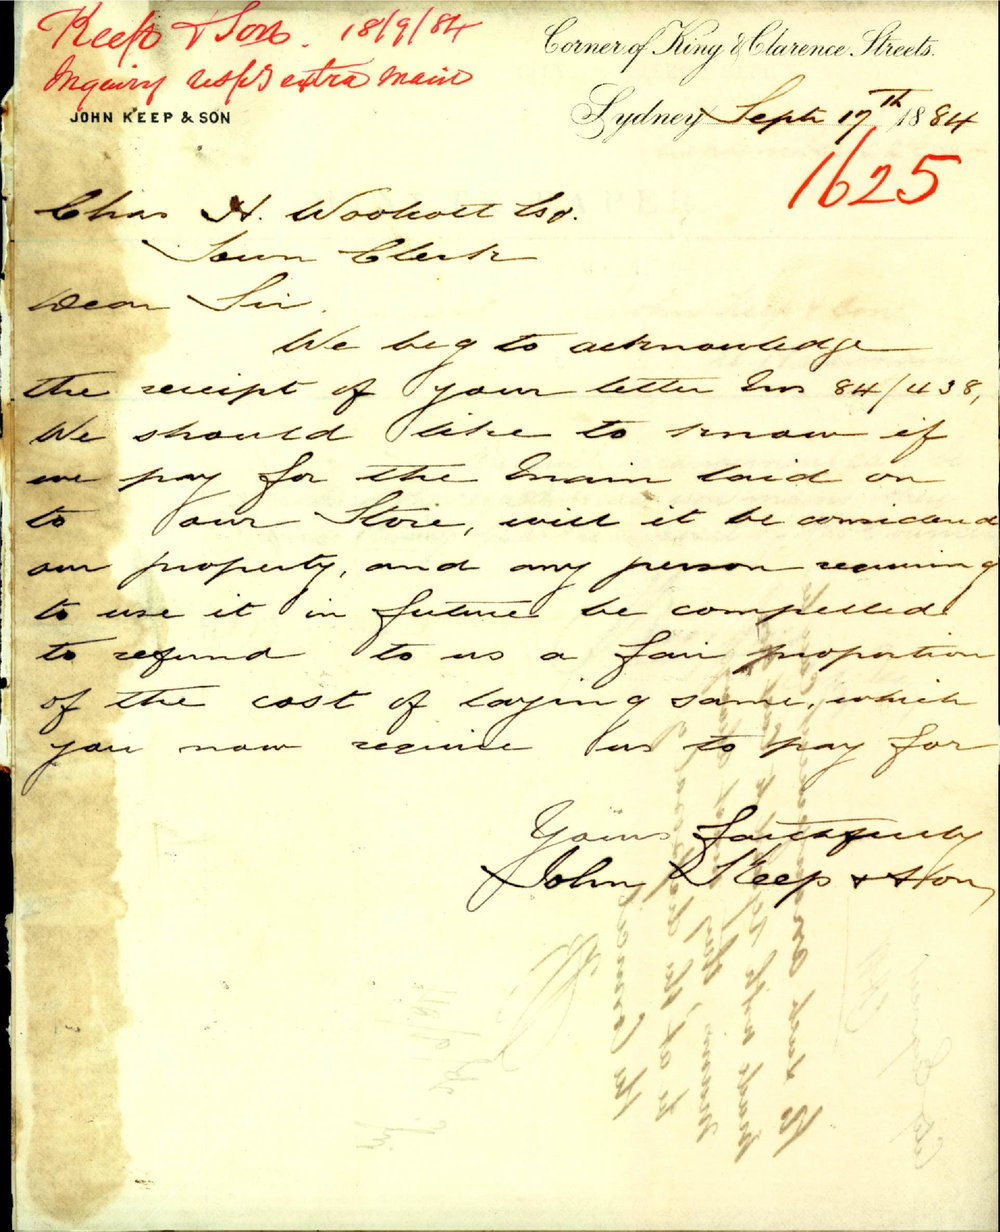 Keep & Son. 18/9/84
Inquiry resp'g extra main
JOHN KEEP & SON
Corner of King & Clarence Streets.
Sydney Septr 17th 1884
1625
Chas H. Woolcott Esq.
Town Clerk
Dear Sir.
We beg to acknowledge
the receipt of your letter 84/438,
We should like to know if
we pay for the Main laid on
to our Store, will it be considered
our property, and any person requiring
to use it in future be compelled
to refund to us a fair proportion
of the cost of laying same, which
you now require us to pay for
Yours faithfully
John Keep & Son